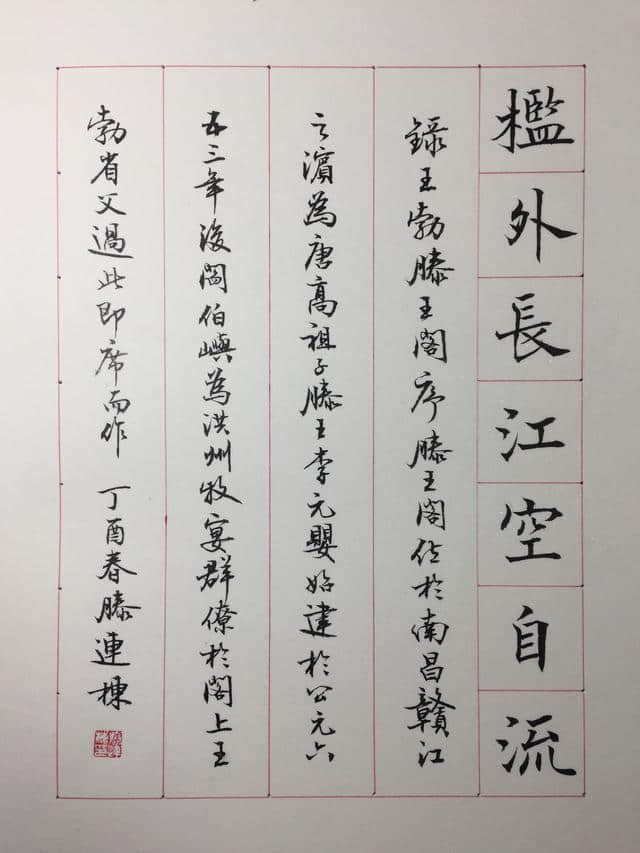 檻外長江空自流
錄王勃滕王閣序滕王閣位於南昌贛江
之濱為唐高祖子滕王李元嬰始建於公元六
五三年後閻伯嶼為洪州牧宴群僚於閣上王
勃省父過此即席而作 丁酉春滕連棟